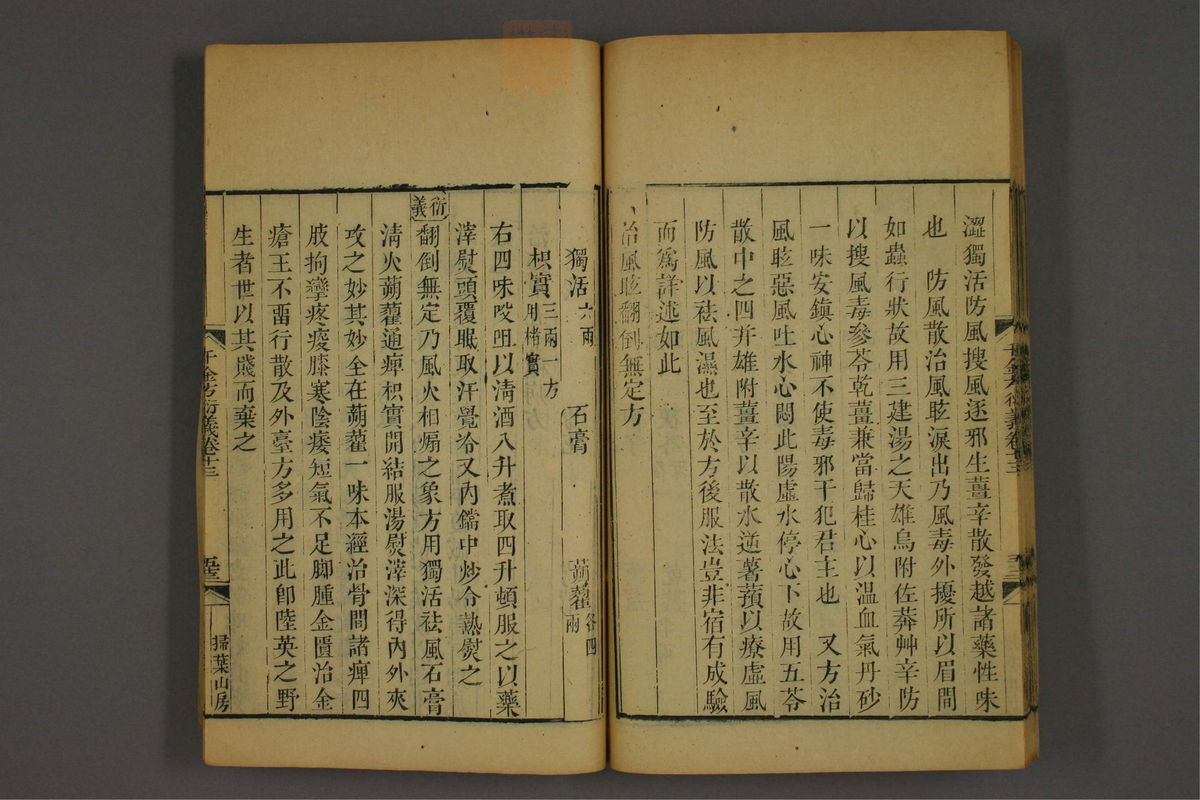 澀獨活防風搜風逐邪生薑辛散發越諸藥性味
也　防風散治風眩淚出乃風毒外擾所以眉間
如蟲行狀故用三建湯之天雄烏附佐莽艸辛防
以搜風毒參苓乾薑兼當歸桂心以温血氣丹砂
一味安鎮心神不使毒邪干犯君主也　又方治
風眩惡風吐水心悶此陽虛水停心下故用五苓
散中之四并雄附薑辛以散水逆薯蕷以療虛風
防風以祛風濕也至於方後服法豈非宿有成驗
而爲詳述如此
治風眩翻倒無定方
獨活六兩　石膏　蒴藋各四兩
枳實三兩一方用楮實
右四味㕮咀以清酒八升煮取四升頓服之以藥
滓熨頭覆眠取汗覺冷又內鐺中炒令熱熨之
衍義
翻倒無定乃風火相煽之象方用獨活祛風石膏
清火蒴藋通痺枳實開結服湯熨滓深得內外夾
攻之妙其妙全在蒴藋一味本經治骨間諸痺四
肢拘攣疼痠膝寒陰痿短氣不足脚腫金匱治金
瘡王不畱行散及外臺方多用之此卽陸英之野
生者世以其賤而棄之
千金方衍義卷十三
掃葉山房